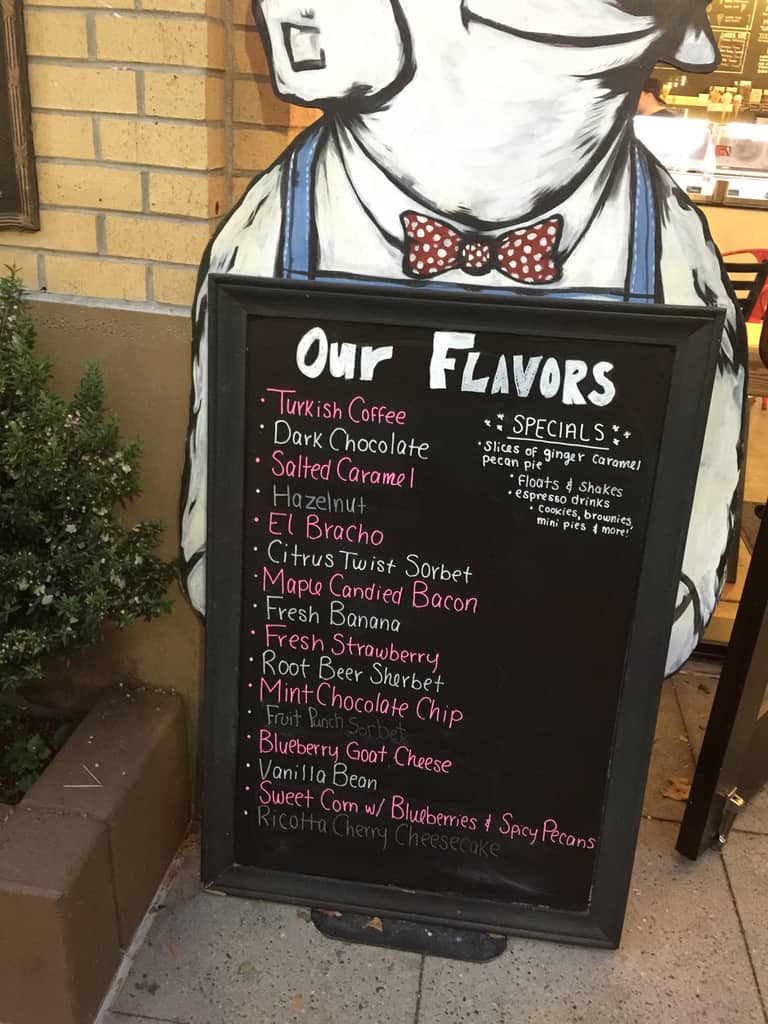 Our FLAVORS
• Turkish Coffee
• Dark Chocolate
• Salted Caramel
• Hazelnut
• El Bracho
• Citrus Twist Sorbet
• Maple Candied Bacon
• Fresh Banana
• Fresh Strawberry
• Root Beer Sherbet
• Mint Chocolate Chip
• Fruit Punch Sorbet
• Blueberry Goat Cheese
• Vanilla Bean
• Sweet Corn w/ Blueberries & Spicy Pecans
• Ricotta Cherry Cheesecake
SPECIALS
• Slices of ginger caramel
pecan pie
• Floats & Shakes
• espresso drinks
• cookies, brownies,
mini pies & more!